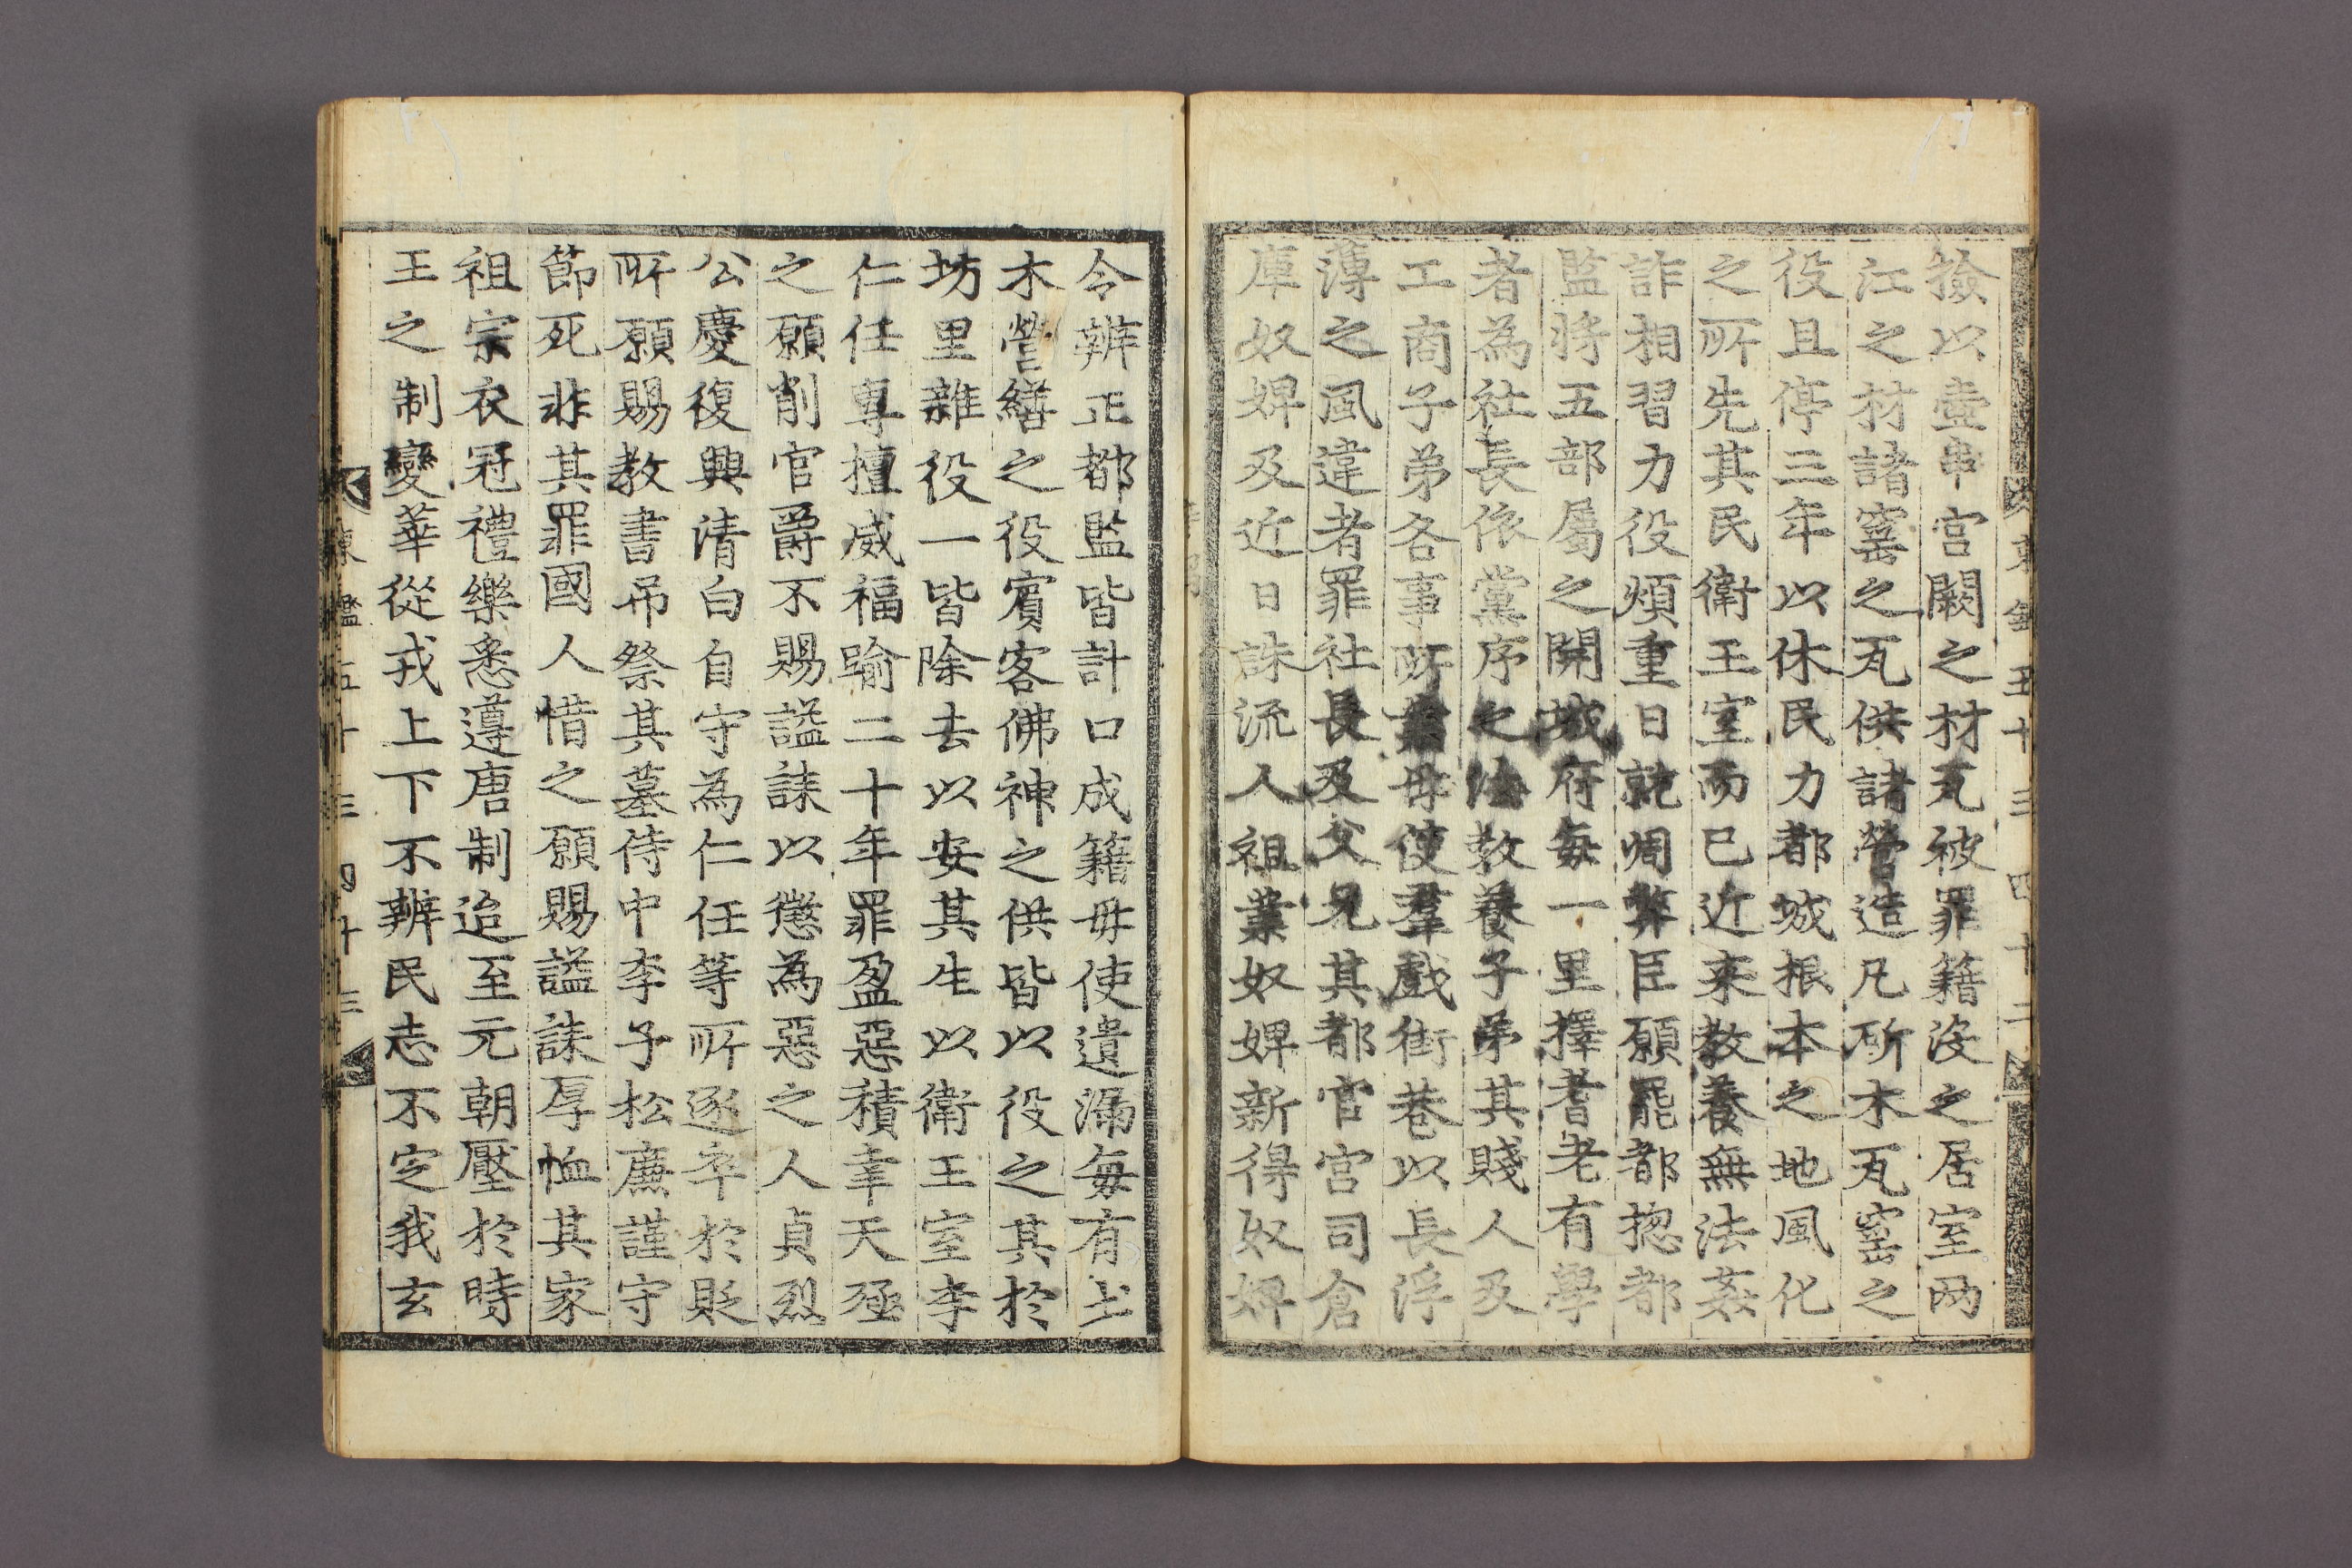 撿以壺串宮闕之材瓦被罪籍沒之居室两
江之材諸窰之瓦供諸營造凡斫木瓦窰之
役且停三年以休民力都城根本之地風化
之所先其民衛王室而已近来教養無法姦
詐相習力役煩重日就凋弊臣願罷都揔都
監將五部屬之開城府每一里擇耆老有學
者為社長依黨序之法教養子弟其賤人及
工商子弟各事所業毋使羣戲街巷以長浮
薄之風違者罪社長及父兄其都官宮司倉
庫奴婢及近日誅流人祖業奴婢新得奴婢
東鑑五十三 四十二
令辨正都監皆計口成籍毋使遺漏每有土
木營繕之役賓客佛神之供皆以役之其於
坊里雜役一皆除去以安其生以衛王室李
仁任專擅威福踰二十年罪盈惡積幸天殛
之願削官爵不賜謚誄以懲為惡之人貞烈
公慶復興清白自守為仁任等所逐卒於貶
所願賜教書吊祭其墓侍中李子松廉謹守
節死非其罪國人惜之願賜謚誄厚恤其家
祖宗衣冠禮樂悉遵唐制迨至元朝壓於時
王之制變華從戎上下不辨民志不定我玄
東鑑五十三 四十三